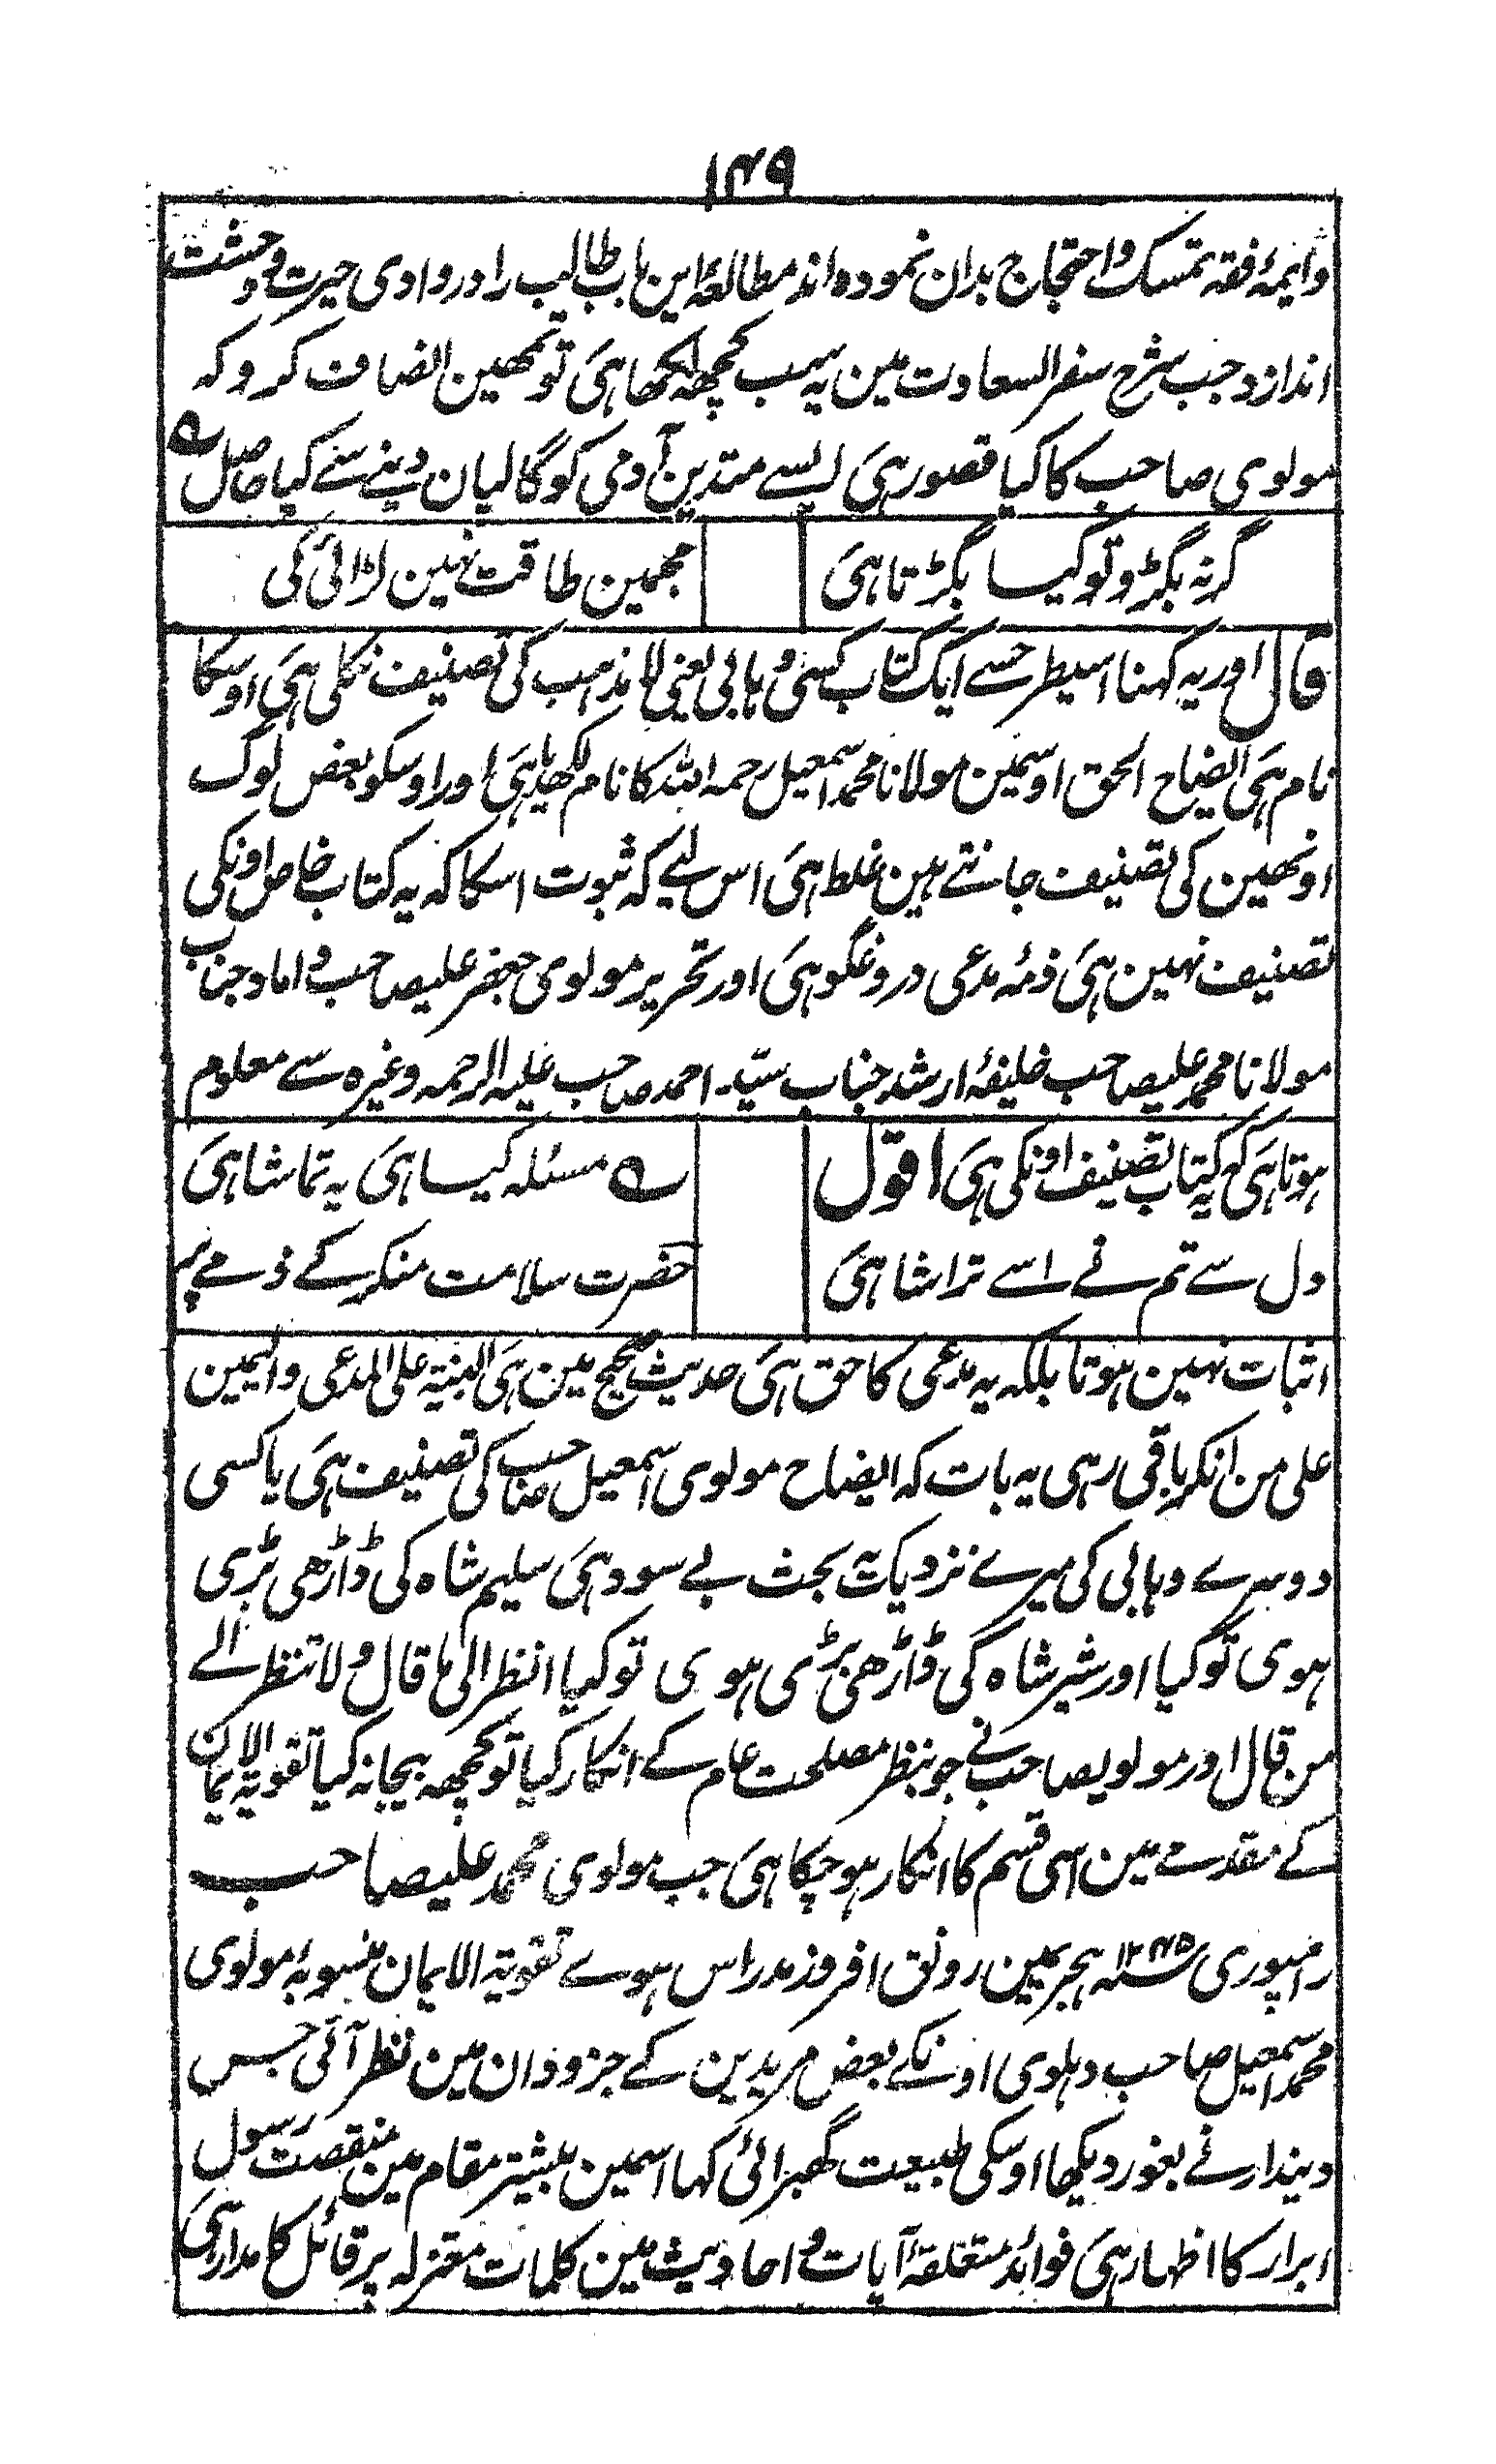 ۱۴۹
وایمۂ فقہ تمسک و احتجاج بدان نموده اند مطالعۂ این باب طالب را در وادی حیرت و وحشت
اندازد جب شرح سفر السعادت مین یہ سب کچھہ لکھا ہی تو تمھین انصاف کرو کہ
مولوی صاحب کا کیا قصور ہی ایسے متدین آدمی کو گالیان دینے سے کیا حاصل ؎
گر نہ بگڑو تو کیسا بگڑتا ہی مجھمین طاقت نہین لڑائی کی
قال اور یہ کہنا اسیطرحسے ایک کتاب کسی وہابی یعنی لا مذہب کی تصنیف نکلی ہی اوسکا
نام ہی ایضاح الحق اوسمین مولانا محمد اسمعیل رحمہ اللہ کا نام لکھدیا ہی اور اوسکو بعض لوگ
اونھین کی تصنیف جانتے ہین غلط ہی اس لیے کہ ثبوت اسکا کہ یہ کتاب خاص اونکی
تصنیف نہین ہی ذمۂ مدعی دروغگو ہی اور تحریر مولوی جعفر علیصاحب داماد جناب
مولانا محمد علیصاحب خلیفۂ ارشد جناب سیّد احمد صاحب علیہ الرحمہ وغیرہ سے معلوم
ہوتا ہی کہ یہ کتاب تصنیف اونکی ہی اقول ؎ مسئلہ کیسا ہی یہ تماشا ہی
دل سے تم نے اسے تراشا ہی حضرت سلامت منکر کے ذمے پر
اثبات نہین ہوتا بلکہ یہ مدعی کا حق ہی حدیث صحیح مین ہی البنیۃ علی المدعی والیمین
علی من انکر باقی رہی یہ بات کہ ایضاح مولوی اسمعیل صاحب کی تصنیف ہی یا کسی
دوسرے وہابی کی میرے نزدیک یہ بحث بے سود ہی سلیم شاہ کی ڈاڑھی بڑی
ہوی تو کیا اور شیر شاہ کی ڈاڑھی بڑی ہوی تو کیا انظر الی ما قال ولا تنظر الے
من قال اور مولویصاحب نے جو بنظر مصلحت عام کے انکار کیا تو کچھہ بیجا نہ کیا تقویۃ الایمان
کے مقدمے مین اسی قسم کا انکار ہو چکا ہی جب مولوی محمد علیصاحب
رامپوری ۱۲۴۵سنہ ہجریمین رونق افروز مدراس ہوے تقویۃ الایمان منسوبۂ مولوی
محمد اسمعیل صاحب دہلوی اونکے بعض مریدین کے جزودان مین نظر آئی جس
دیندار نے بغور دیکھا اوسکی طبیعت گھبرائی کہا اسمین بیشتر مقام مین منقصت رسول
ابرار کا اظہار ہی فوائد متعلقۂ آیات و احادیث مین کلمات معتزلہ پر قائل کا مدار ہی